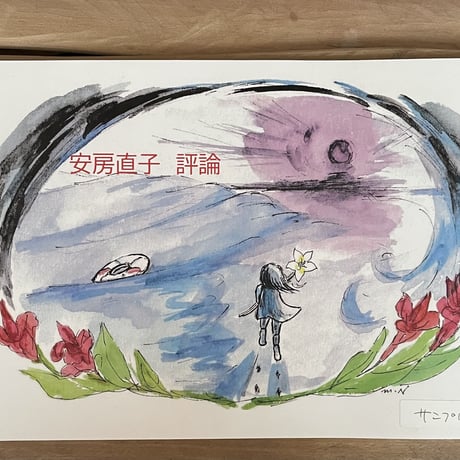 安房直子 評論
m.N
サンプル